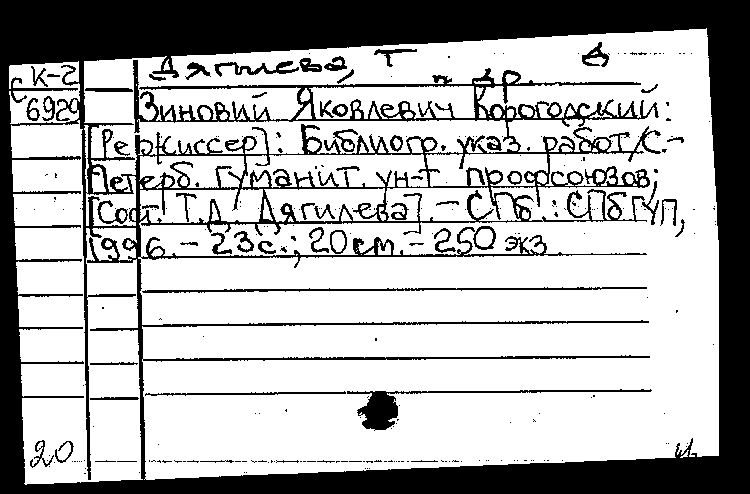 К-2 Дягилева, Т Д
и др.
С 6929 Зиновий Яковлевич Корогодский:
[Режиссер]: Библиогр. указ. работ/С.-
Петерб. гуманит. ун-т профсоюзов;
[Сост. Т.Д. Дягилева]. - СПб.: СПбГУП,
1996. - 23с.; 20см. - 250 экз
20